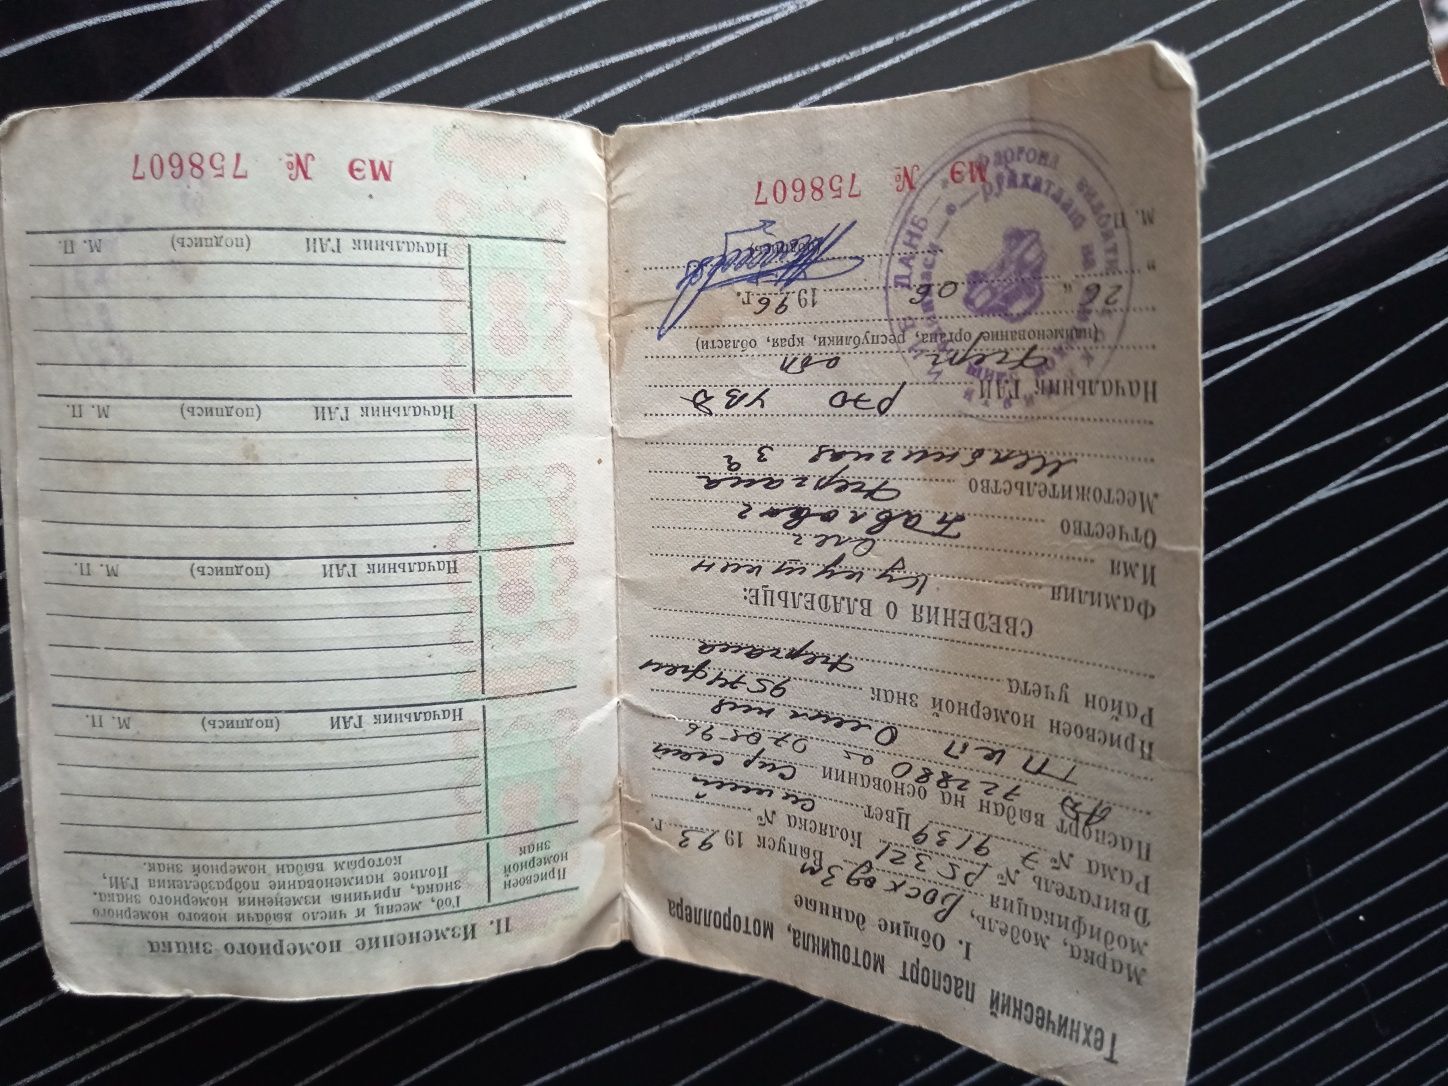 Технический паспорт мотоцикла, мотороллера
I. Общие данные
Марка, модель,
модификация Восход 3М Выпуск 1993 г.
Двигатель № Р5321 Коляска №
Рама № 79139 Цвет синий
Паспорт выдан на основании
АД 722880 от 07 05 96
ТП и П
Присвоен номерной знак 9574
Район учета Фергана
СВЕДЕНИЯ О ВЛАДЕЛЬЦЕ:
Фамилия Кукушкин
Имя Олег
Отчество Павлович
Местожительство Фергана
3
Начальник ГАИ РЭО УВД
Ферг обл
(наименование органа, республики, края, области)
„ 26 “ 06 1996 г.
М. П. (подпись)
МЭ № 758607
II. Изменение номерного знака
Присвоен номерной знак
Год, месяц и число выдачи нового номерного
знака, причины изменения номерного знака.
Полное наименование подразделения ГАИ,
которым выдан номерной знак.
Начальник ГАИ (подпись) М. П.
Начальник ГАИ (подпись) М. П.
Начальник ГАИ (подпись) М. П.
Начальник ГАИ (подпись) М. П.
МЭ № 758607